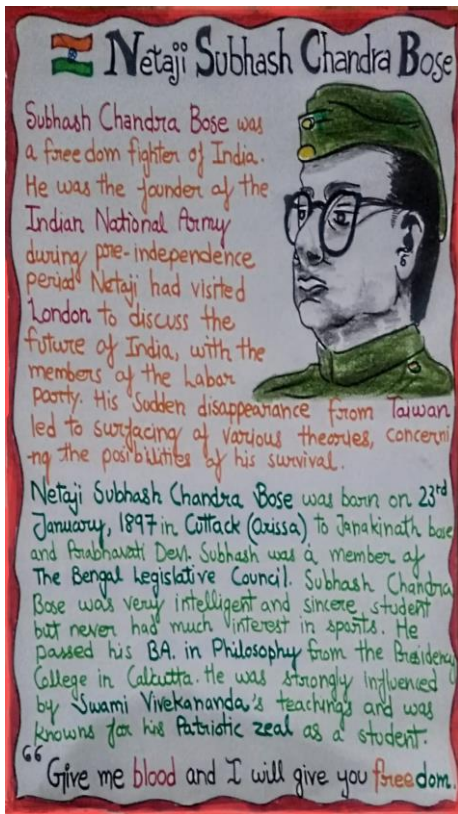 Netaji Subhash Chandra Bose
Subhash Chandra Bose was
a freedom fighter of India.
He was the founder of the
Indian National Army
during pre-independence
period Netaji had visited
London to discuss the
future of India, with the
members of the Labar
Party. His Sudden disappearance from Taiwan
led to surfacing of various theories, concerni
-ng the posibilities of his survival.
Netaji Subhash Chandra Bose was barn on 23rd
January, 1897 in Cuttack (Orissa) to Janakinath bose
and Prabhavati Devi. Subhash was a member of
The Bengal Legislative Council. Subhash Chandra
Bose was very intelligent and sincere student
but never had much interest in sports. He
passed his BA. in Philosophy from the Presidency
College in Calcutta. He was strongly Influenced
by Swami Vivekananda's teachings and was
knowns for his Patriotic zeal as a student.
"Give me blood and I will give you freedom.